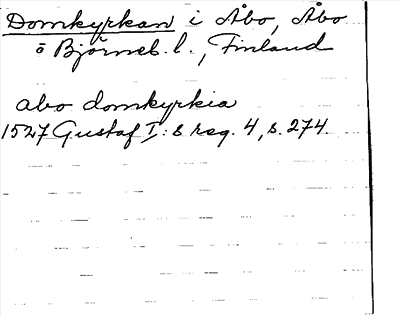 Domkyrkan i Åbo, Åbo
ö Björneb. l., Finland
abo domkyrkia
1527 Gustaf I:s reg. 4, s. 274.